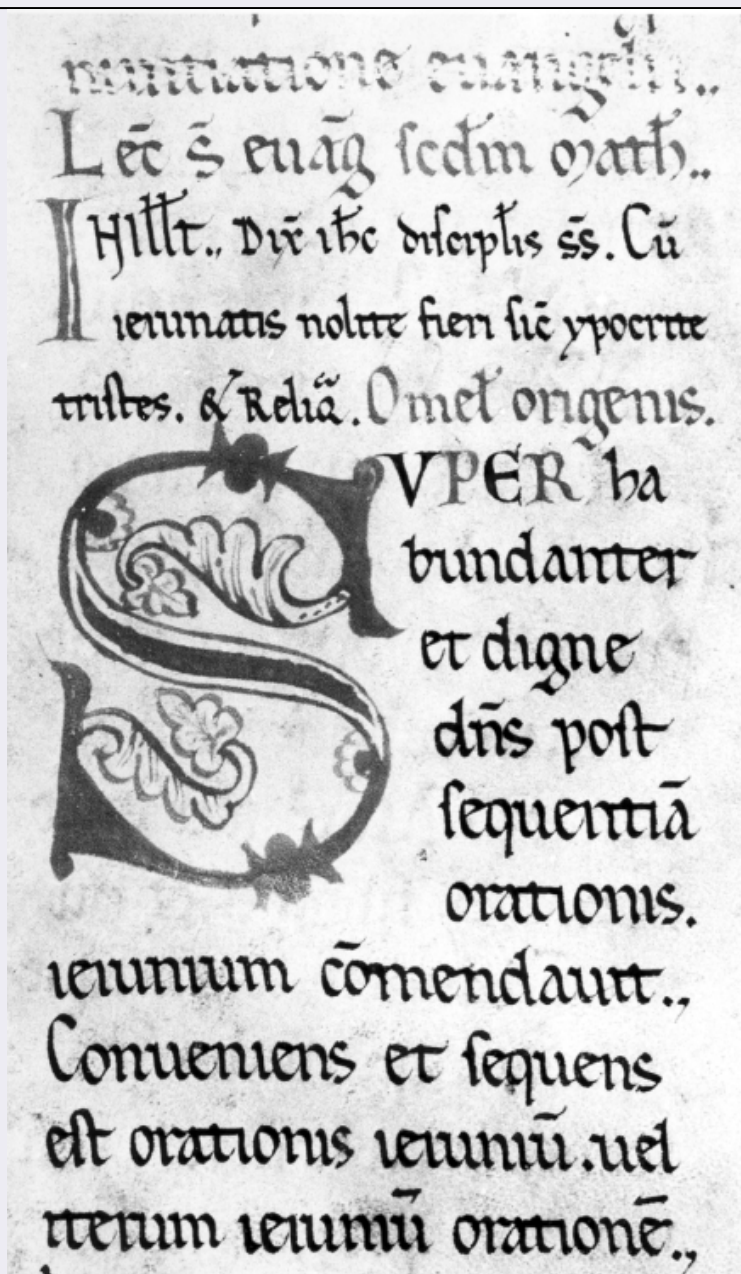 nuntiatione euangelii..
Lec̄ s̄ euāg scd̄m Math̄..
IN ILL̄T.. Dix̄ ih̄c discipl̄is s̄s. Cū
ieiunatis nolite fieri sic̄ ypocrite
tristes. & Reliq̄. Omel̄ origenis.
SVPER ha
bundanter
et digne
dn̄s post
sequentiā
orationis.
ieiunium cōmendauit..,
Conueniens et sequens
est orationis ieiuniū. uel
iterum ieiuniū orationē..,